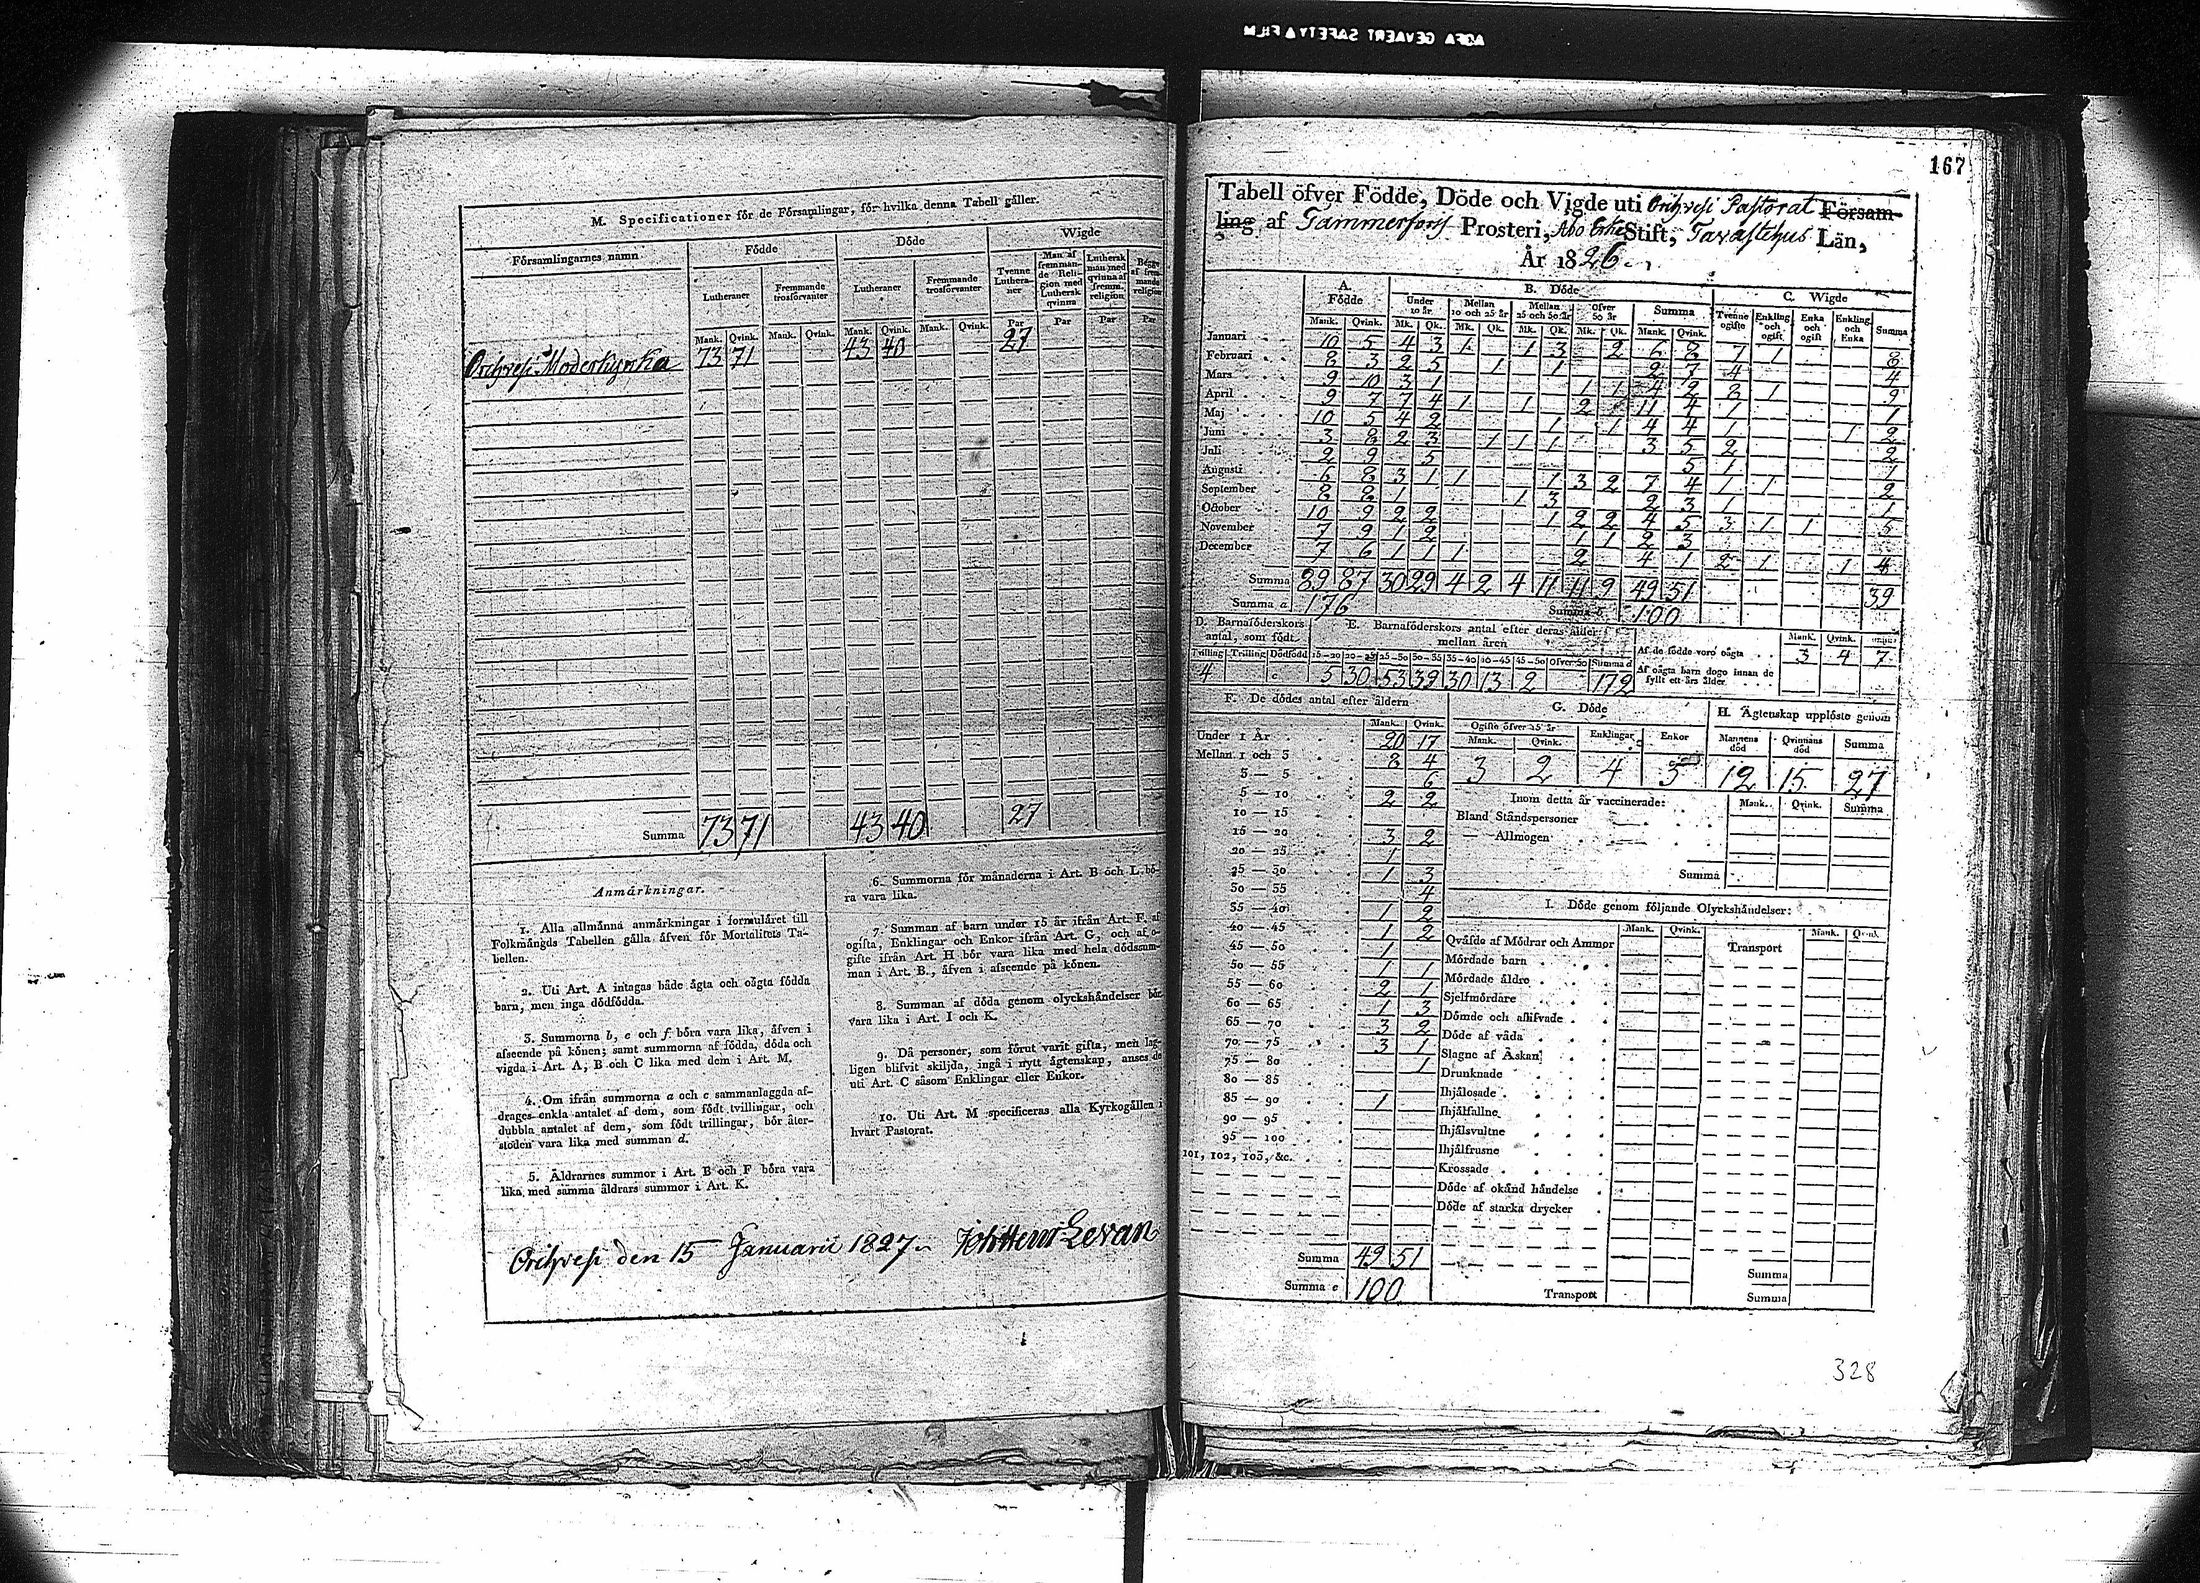 AGFA GEVAERT SAFETY FILM
M. Specificationer för de Församlingar, för hvilka denna Tabell gäller.
Församlingarnes namn
Födde
Döde
Wigde
Lutheraner
Fremmande trosförvanter
Lutheraner
Fremmande trosförvanter
Tvenne Lutheraner
Man af fremmande Religion med Luthersk qvinna
Luthersk man med qvinna af fremm. religion
Begge af fremmande religion
Mank. Qvink. Mank. Qvink. Mank. Qvink. Mank. Qvink. Par Par Par Par
Orihvesi Moderkyrka 73 71 43 40 27
Summa 73 71 43 40 27
Anmärkningar.
1. Alla allmänna anmärkningar i formuläret till
Folkmängds Tabellen gälla äfven för Mortalitets Ta-
bellen.
2. Uti Art. A intagas både ägta och oägta födda
barn, men inga dödfödda.
3. Summorna b, e och f böra vara lika, äfven i
afseende på könen; samt summorna af födda, döda och
vigda i Art. A, B och C lika med dem i Art. M.
4. Om ifrån summorna a och c sammanlaggda af-
drages enkla antalet af dem, som födt tvillingar, och
dubbla antalet af dem, som födt trillingar, bör åter-
stoden vara lika med summan d.
5. Åldrarnes summor i Art. B och F böra vara
lika med samma åldrars summor i Art. K.
6. Summorna för månaderna i Art. B och L bö-
ra vara lika.
7. Summan af barn under 15 år ifrån Art. F, af
ogifta, Enklingar och Enkor ifrån Art. G, och af
gifte ifrån Art. H bör vara lika med hela dödssum-
man i Art. B., äfven i afseende på könen.
8. Summan af döda genom olyckshändelser bör
vara lika i Art. I och K.
9. Då personer, som förut varit gifta, men lag-
ligen blifvit skiljda, ingå i nytt ägtenskap, anses de
uti Art. C såsom Enklingar eller Enkor.
10. Uti Art. M specificeras alla Kyrkogällen i
hvart Pastorat.
Orihvesi den 15 Januarii 1827 Levan
167
Tabell öfver Födde, Döde och Vigde uti Orihvesi Pastorat Försam-
ling af Tammerfors Prosteri, Åbo Erke Stift, Tavastehus Län,
År 1826.
A. Födde
B. Döde
C. Wigde
Under 10 år
Mellan 10 och 25 år
Mellan 25 och 50 år
Öfver 50 år
Summa
Tvenne ogifte
Enkling och ogift
Enka och ogift
Enkling och Enka
Summa
Mank. Qvink. Mk. Qk. Mk. Qk. Mk. Qk. Mk. Qk. Mank. Qvink.
Januari 10 5 4 3 1 1 3 2 6 8 7 1 8
Februari 8 3 2 5 1 1 2 7 4 4
Mars 9 10 3 1 1 1 4 2 8 1 9
April 9 7 7 4 1 1 2 11 4 1 1
Maj 10 5 4 2 1 1 4 4 1 1 2
Juni 3 8 2 3 1 1 1 3 5 2 2
Juli 2 9 5 5 1 1
Augusti 6 8 3 1 1 1 3 2 7 4 1 1 2
September 8 8 1 1 3 2 3 1 1
October 10 9 2 2 1 2 2 4 5 3 1 1 5
November 7 9 1 2 1 1 2 3
December 7 6 1 1 1 2 4 1 2 1 1 4
Summa 89 87 30 29 4 2 4 11 11 9 49 51 39
Summa a 176 Summa b 100
D. Barnaföderskors antal, som födt
E. Barnaföderskors antal efter deras ålder: mellan åren
Tvilling Trilling Dödfödd 15-20 20-25 25-30 30-35 35-40 40-45 45-50 Öfver 50 Summa d
4 c 5 30 53 39 30 13 2 172
Mank. Qvink. Summa
Af de födde voro oägta 3 4 7
Af oägta barn dogo innan de fyllt ett års ålder
F. De dödes antal efter åldern
Mank. Qvink.
Under 1 År 20 17
Mellan 1 och 3 8 4
3 — 5 6
5 — 10 2 2
10 — 15
15 — 20 3 2
20 — 25 1
25 — 30 1 3
30 — 35 4
35 — 40 1 2
40 — 45 1 2
45 — 50 1
50 — 55 1 1
55 — 60 2 1
60 — 65 1 3
65 — 70 3 2
70 — 75 3 1
75 — 80 1
80 — 85
85 — 90 1
90 — 95
95 — 100
101, 102, 103, &c.
Summa 49 51
Summa e 100
G. Döde
Ogifte öfver 25 år
Mank. Qvink. Enklingar Enkor
3 2 4 5
H. Ägtenskap upplöste genom
Mannens död Qvinnans död Summa
12 15 27
Inom detta år vaccinerade: Mank. Qvink. Summa
Bland Ståndspersoner
— Allmogen
Summa
I. Döde genom följande Olyckshändelser:
Mank. Qvink. Transport Mank. Qvink.
Qväfde af Mödrar och Ammor
Mördade barn
Mördade äldre
Sjelfmördare
Dömde och aflifvade
Döde af våda
Slagne af Åskan
Drunknade
Ihjälosade
Ihjälfallne
Ihjälsvultne
Ihjälfrusne
Krossade
Döde af okänd händelse
Döde af starka drycker
Summa
Transport
Summa
328